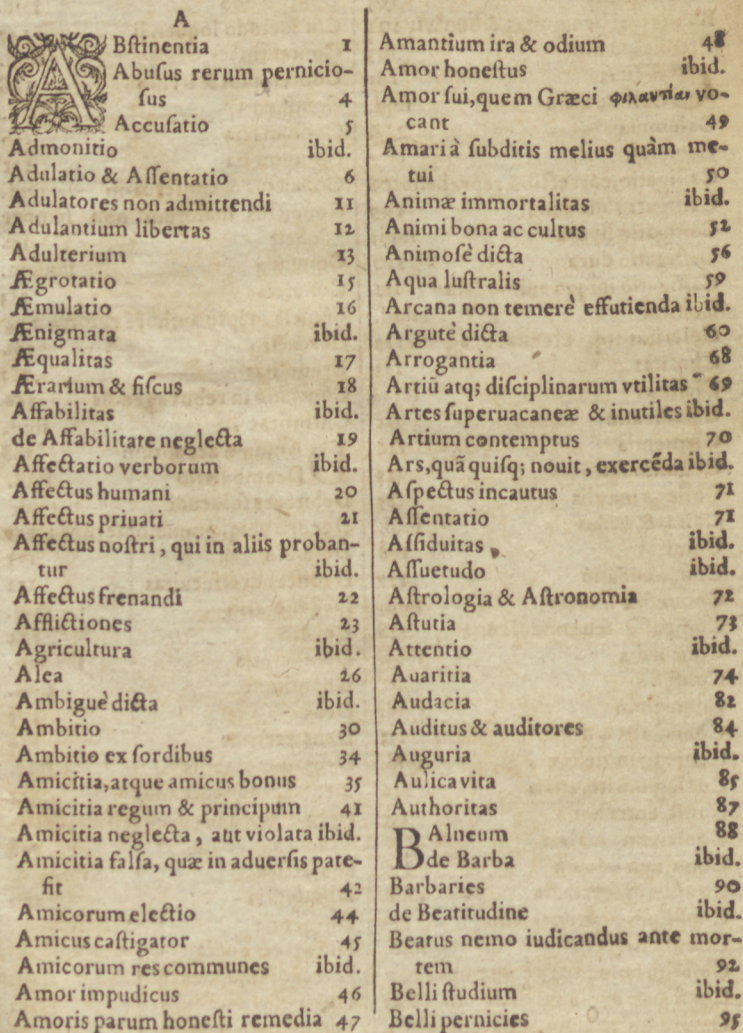 A
ABſtinentia 1
Abuſus rerum pernicio-
ſus 4
Accuſatio 5
Admonitio ibid.
Adulatio & Aſſentatio 6
Adulatores non admittendi 11
Adulantium libertas 12
Adulterium 13
Ægrotatio 15
Æmulatio 16
Ænigmata ibid.
Æqualitas 17
Ærarium & fiſcus 18
Affabilitas ibid.
de Affabilitate neglecta 19
Affectatio verborum ibid.
Affectus humani 20
Affectus priuati 21
Affectus noſtri, qui in aliis proban-
tur ibid.
Affectus frenandi 22
Afflictiones 23
Agricultura ibid.
Alea 26
Ambiguè dicta ibid.
Ambitio 30
Ambitio ex ſordibus 34
Amicitia, atque amicus bonus 35
Amicitia regum & principum 41
Amicitia neglecta, aut violata ibid.
Amicitia falſa, quæ in aduerſis pate-
fit 42
Amicorum electio 44
Amicus caſtigator 45
Amicorum res communes ibid.
Amor impudicus 46
Amoris parum honeſti remedia 47
Amantium ira & odium 48
Amor honeſtus ibid.
Amor ſui, quem Græci φιλαυτίαν vo-
cant 49
Amari à ſubditis melius quàm me-
tui 50
Animæ immortalitas ibid.
Animi bona ac cultus 52
Animoſè dicta 56
Aqua luſtralis 59
Arcana non temerè effutienda ibid.
Argutè dicta 60
Arrogantia 68
Artiū atq; diſciplinarum vtilitas 69
Artes ſuperuacaneæ & inutiles ibid.
Artium contemptus 70
Ars, quã quiſq; nouit, exercẽda ibid.
Aſpectus incautus 71
Aſſentatio 71
Aſſiduitas ibid.
Aſſuetudo ibid.
Aſtrologia & Aſtronomia 72
Aſtutia 73
Attentio ibid.
Auaritia 74
Audacia 82
Auditus & auditores 84
Auguria ibid.
Aulica vita 85
Authoritas 87
BAlneum 88
de Barba ibid.
Barbaries 90
de Beatitudine ibid.
Beatus nemo iudicandus ante mor-
tem 92
Belli ſtudium ibid.
Belli pernicies 95